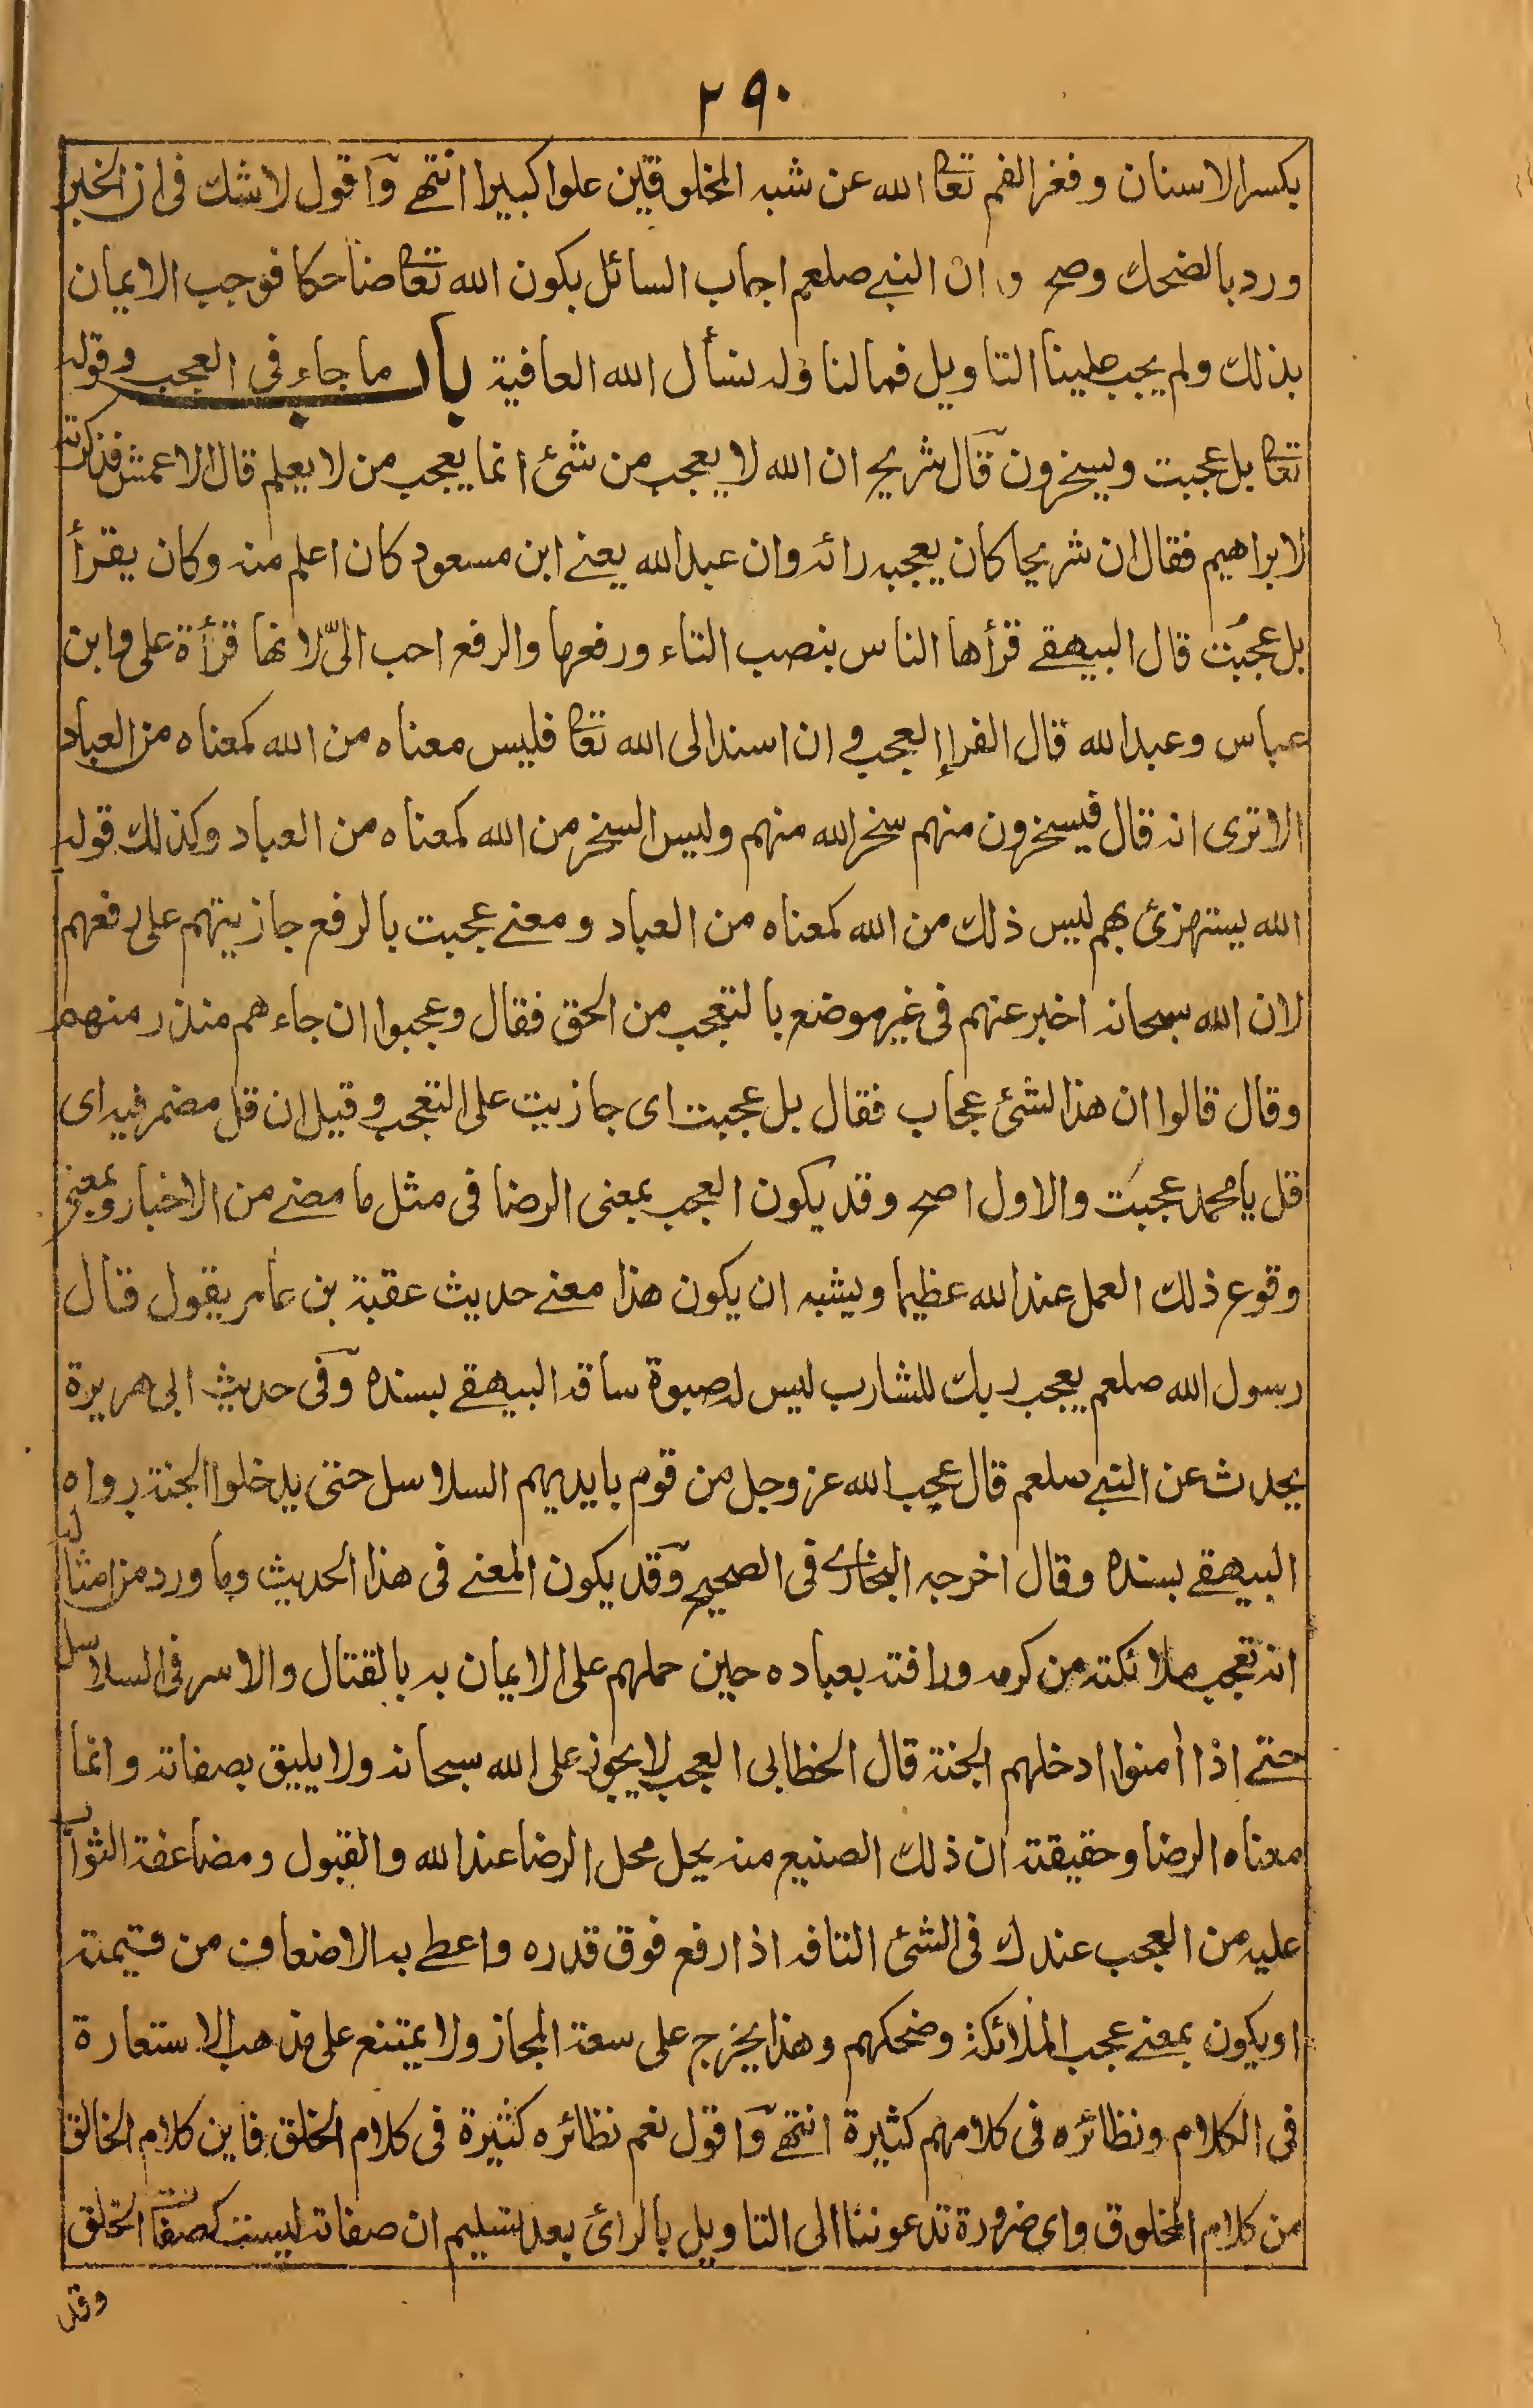 ٢٩٠
بكسر الاسنان وفغر الفم تعا الله عن شبه المخلوقين علوا كبيرا انتهے وآقول لاشك فى ان الخبر
ورد بالضحك وصح وان النبے صلعم اجاب السائل بكون الله تعا ضاحكا فوجب الايمان
بذلك ولم يجب علينا التاويل فمالنا وله نسأل الله العافية باب ما جاء فى العجب وقوله
تعا بل عجبت ويسخرون قآل شريح ان الله لا يعجب من شئ انما يعجب من لا يعلم قال الاعمش فذكرته
لابراهيم فقال ان شريحا كان يعجبه رائه وان عبد الله يعنے ابن مسعود كان اعلم منه وكان يقرأ
بل عجبُت قال البيهقے قرأها الناس بنصب التاء ورفعها والرفع احب الىّ لانها قرأة على وابن
عباس وعبد الله قال الفراء العجب و ان اسند الى الله تعا فليس معناه من الله كمعناه من العباد
الا ترى انه قال فيسخرون منهم سخر الله منهم وليس السخر من الله كمعناه من العباد وكذلك قوله
الله يستهزئ بهم ليس ذلك من الله كمعناه من العباد ومعنے عجبت بالرفع جازيتهم على رفعهم
لان الله سبحانه اخبر عنهم فى غير موضع بالتعجب من الحق فقال وعجبوا ان جاءهم منذر منهم
وقال قالوا ان هذا لشئ عجاب فقال بل عجبت اى جازيت على التعجب وقيل ان قل مضمر فيه اى
قل يا محمد عجبتَ والاول اصح وقد يكون العجب بمعنى الرضا فى مثل ما مضے من الاخبار وبمعنے
وقوع ذلك العمل عند الله عظيما ويشبه ان يكون هذا معنے حديث عقبة بن عامر يقول قال
رسول الله صلعم يعجب ربك للشارب ليس له صبوة ساقه البيهقے بسنده وآفى حديث ابى هريرة
يحدث عن النبے صلعم قال عجب الله عز وجل من قوم بايديهم السلاسل حتى يدخلوا الجنة رواه
البيهقے بسنده وقال اخرجه البخارے فى الصحيح وقد يكون المعنے فى هذا الحديث وما ورد من امثاله
انه تعجب ملائكته من كرمه ورافته بعباده حين حملهم على الايمان به بالقتال والاسر فى السلاسل
حتے اذا أمنوا ادخلهم الجنة قال الخطابى العجب لا يجوز على الله سبحانه ولا يليق بصفاته وانما
معناه الرضا وحقيقته ان ذلك الصنيع منه يحل محل الرضا عند الله والقبول ومضاعفة الثواب
عليه من العجب عندك فى الشئ التافه اذا رفع فوق قدره واعطے به الاضعاف من قيمته
او يكون بمعنے عجب الملائكة وضحكهم وهذا يخرج على سعة المجاز ولا يمتنع على مذهب الاستعارة
فى الكلام ونظائره فى كلامهم كثيرة انتهے وآقول نعم نظائره كثيرة فى كلام الخلق فاين كلام الخالق
من كلام المخلوق واى ضرورة تدعوننا الى التاويل بالرائ بعد تسليم ان صفاته ليست كصفات الخلق
وقد